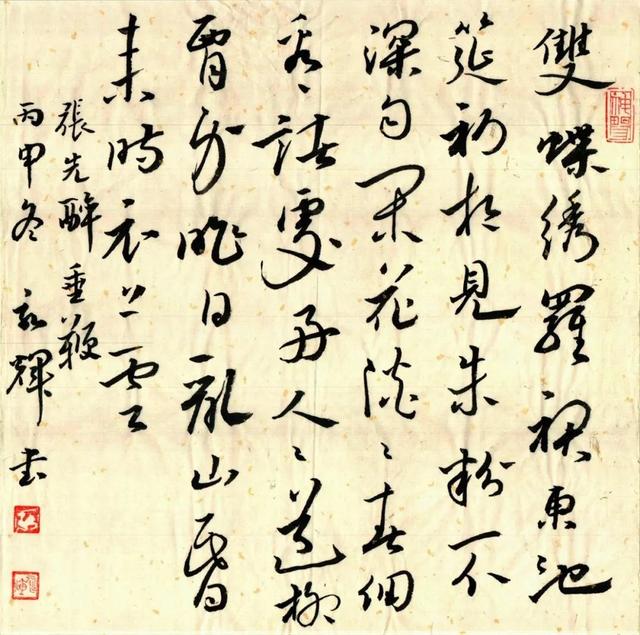 雙蝶绣羅裙東池
筵初相見朱粉不
深匀閑花淡々春細
看々諸處好人々道柳
腰身昨日亂山昏
来時衣上雲
張先醉垂鞭
丙申冬 輝書